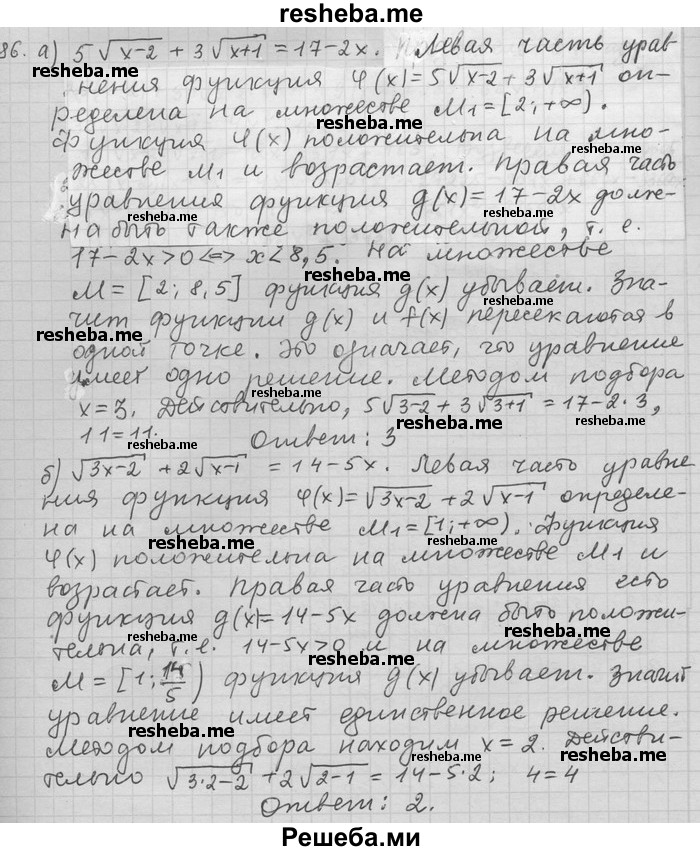 resheba.me
86. а) 5√x-2 + 3√x+1 = 17-2x. Левая часть урав
resheba.me resheba.me
нения функция φ(x)=5√x-2+3√x+1 оп-
ределена на множестве M₁=[2;+∞).
resheba.me
функция φ(x) положительна на мно-
жестве M₁ и возрастает. Правая часть
resheba.me
уравнения функция g(x)=17-2x долж-
resheba.me
на быть также положительной, т. е.
resheba.me
17-2x>0 <=> x<8,5. На множестве
resheba.me
M=[2; 8,5] функция g(x) убывает. Зна-
resheba.me
чит функции g(x) и f(x) пересекаются в
resheba.me
одной точке. Это означает, что уравнение
имеет одно решение. Методом подбора
resheba.me
x=3. Действительно, 5√3-2 + 3√3+1 = 17-2·3,
11=11. Ответ: 3
resheba.me
б) √3x-2 + 2√x-1 = 14-5x. Левая часть уравне
resheba.me
ния функция φ(x)=√3x-2+2√x-1 определе-
на на множестве M₁=[1;+∞). Функция
resheba.me
φ(x) положительна на множестве M₁ и
resheba.me
возрастает. Правая часть уравнения есть
resheba.me
функция g(x)=14-5x должна быть положи-
resheba.me
тельна, т.е. 14-5x>0 и на множестве
resheba.me
M=[1; 14/5) функция g(x) убывает. Значит
resheba.me
уравнение имеет единственное решение.
resheba.me
Методом подбора находим x=2. Действи-
resheba.me
тельно √3·2-2 + 2√2-1 = 14-5·2; 4=4
resheba.me
Ответ: 2.
Решеба.ми